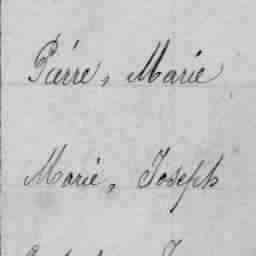 Pierre, Marie
Marie, Joseph